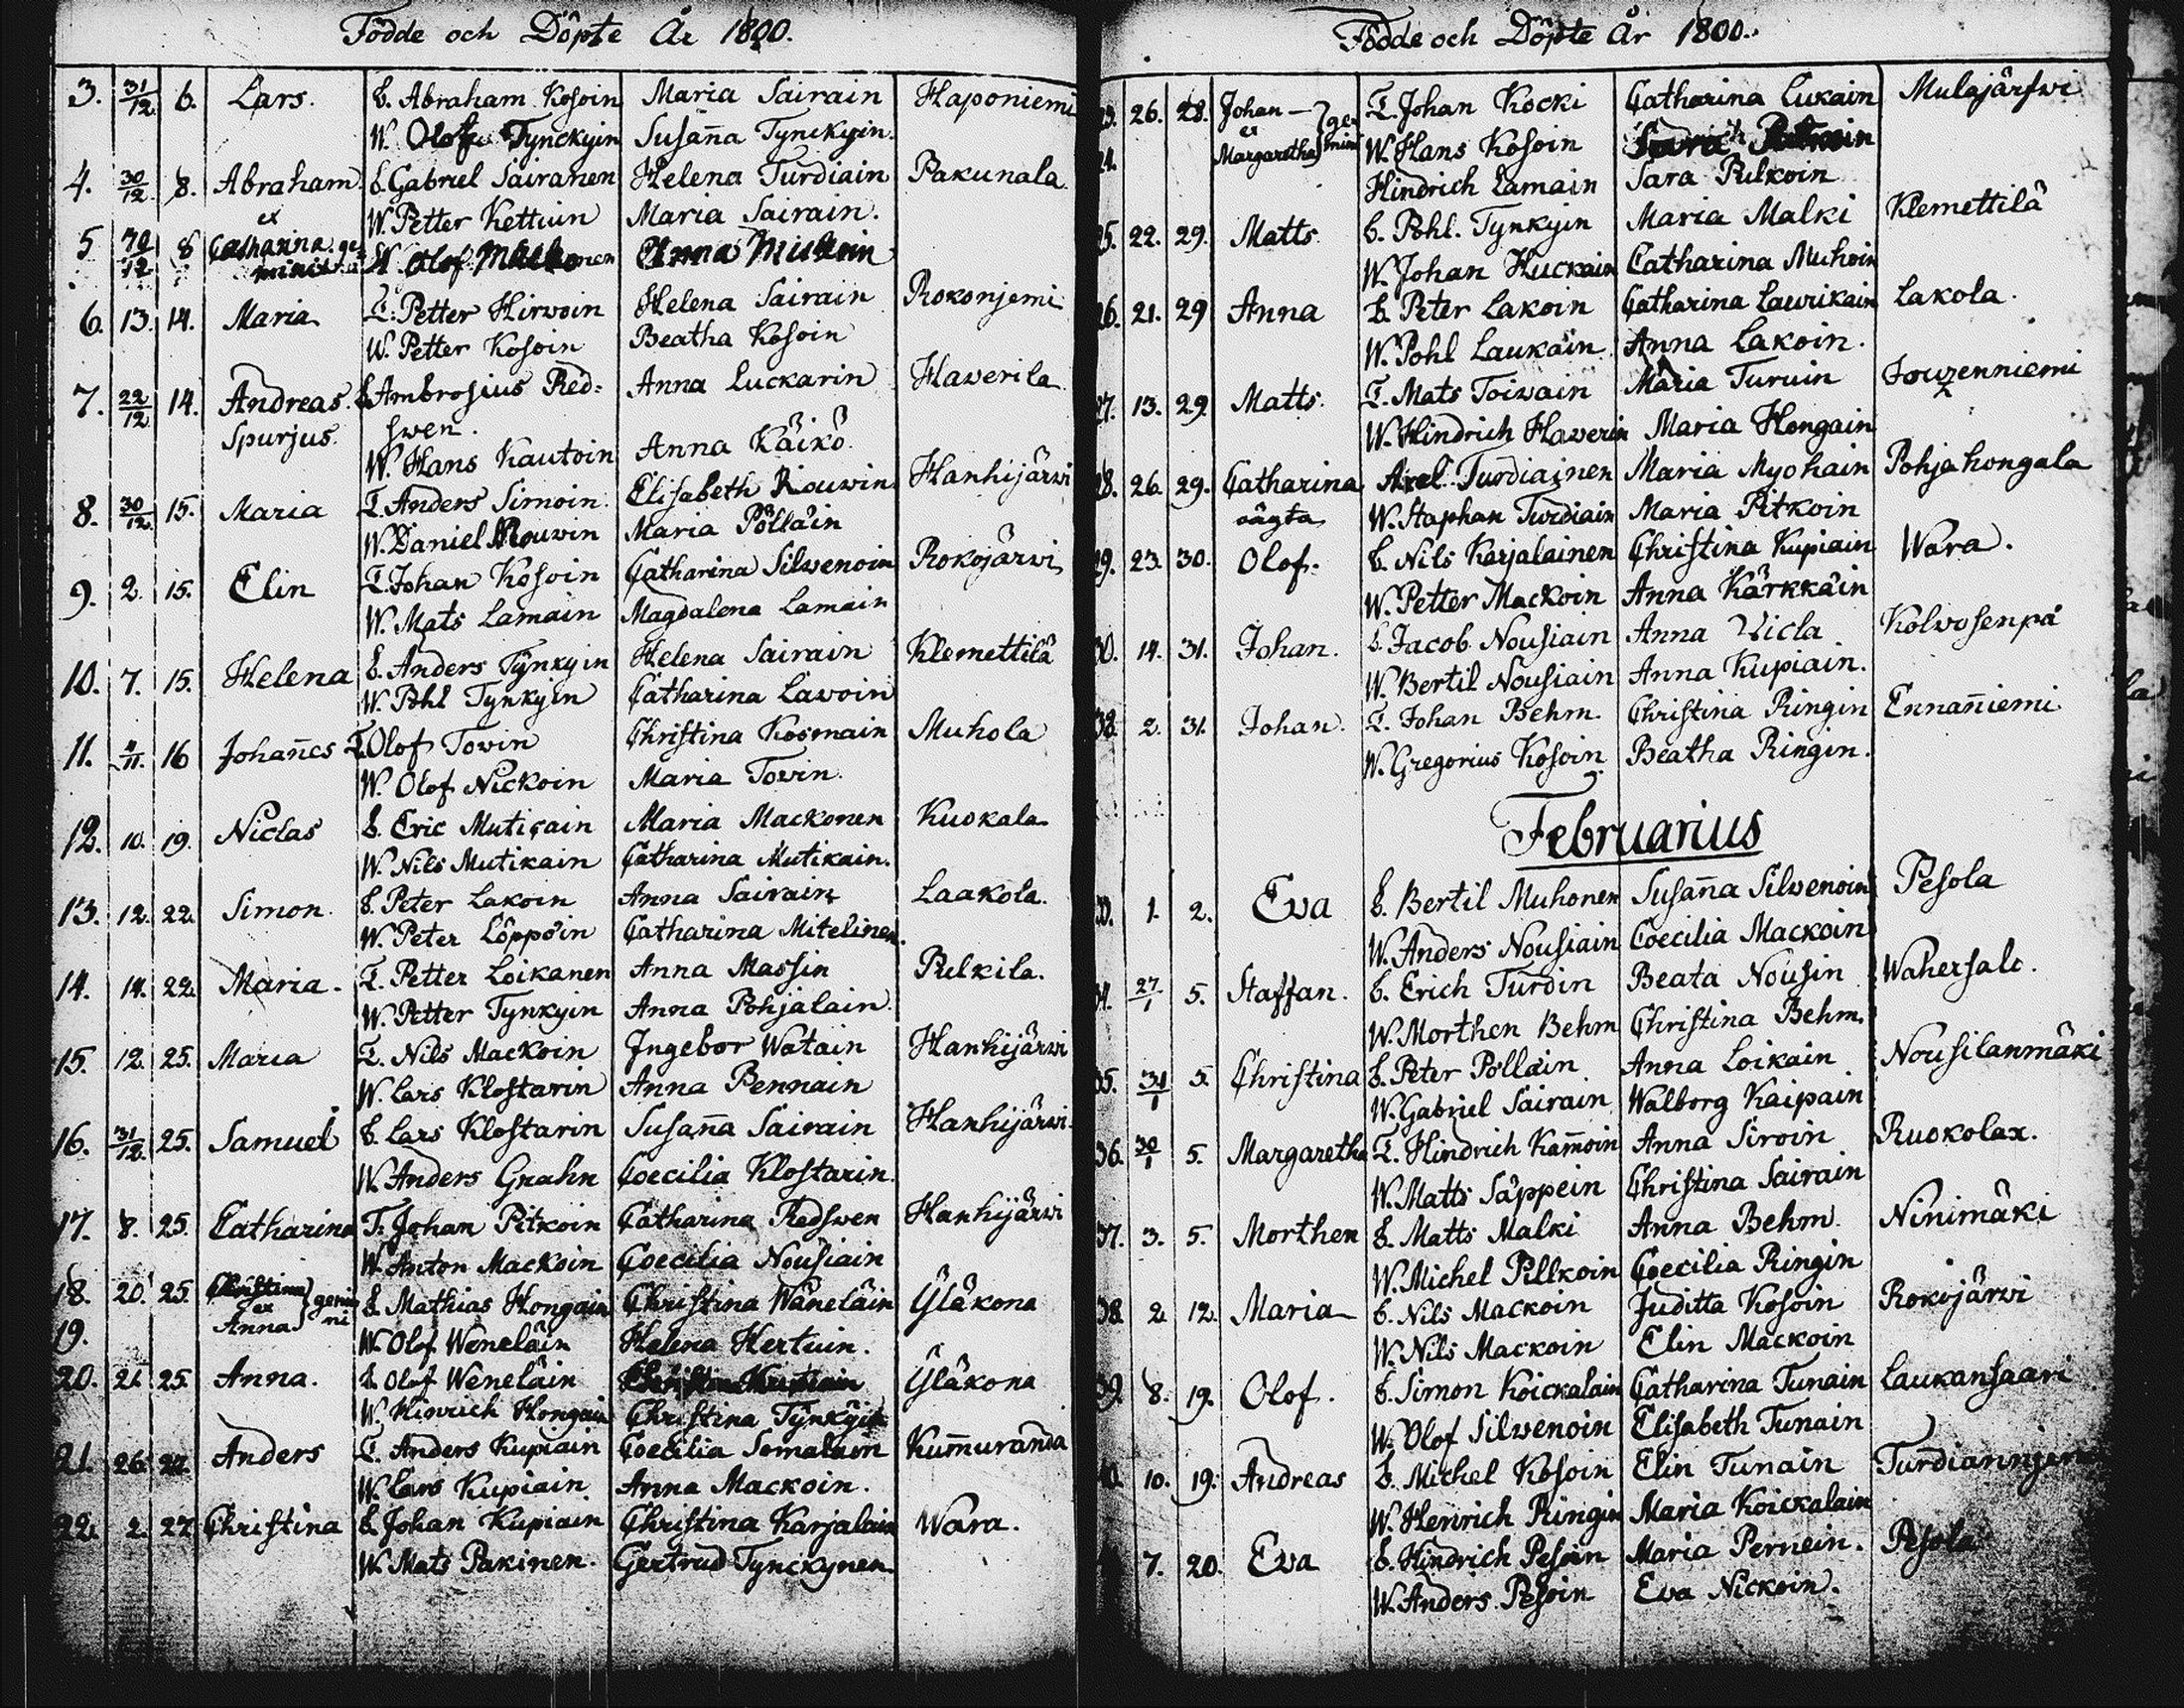 Födde och Döpte År 1800.
3. 31/12 6. Lars. B. Abraham Kosoin Maria Sairain Haponiemi
W. Olof Tynckyin Susan̄a Tynckyin.
4. 30/12 8. Abraham B. Gabriel Sairanen Helena Turdiain Pakunala
et W. Petter Kettuin Maria Sairain.
5 30/12 8 Catharina ge- W. Olof Anna
mini
6. 13. 14. Maria T. Petter Hirwoin Helena Sairain Rokonjemi
W. Petter Kosoin Beatha Kosoin
7. 22/12 14. Andreas B. Ambrosius Red= Anna Luckarin Hawerila
Spurjus. swen.
W. Hans Kautoin Anna Käikö
8. 30/12 15. Maria T. Anders Simoin Elisabeth Rouwin Hanhijärwi
W. Daniel Rouwin Maria Pölläin
9. 2. 15. Elin T. Johan Kosoin Catharina Silwenoin Rokojärwi
W. Mats Lamain Magdalena Lamain
10. 7. 15. Helena B. Anders Tynkyin Helena Sairain Klemettilä
W. Pohl Tynkyin Catharina Lawoin
11. 11 16 Johan̄es T. Olof Towin Christina Kosmain Muhola
W. Olof Nickoin Maria Towin.
12. 10. 19. Niclas B. Eric Mutikain Maria Mackonen Kuokala
W. Nils Mutikain Catharina Mutikain.
13. 12. 22. Simon. B. Peter Lakoin Anna Sairain Laakola.
W. Peter Löppöin Catharina Mitelinen.
14. 14. 22. Maria. T. Petter Loikanen Anna Massin Pulkila.
W. Petter Tynkyin Anna Pohjalain.
15. 12. 25. Maria T. Nils Mackoin Jngebor Watain Hanhijärwi
W. Lars Klostarin Anna Pennain
16. 31/12. 25. Samuel B. Lars Klostarin Susan̄a Sairain Hanhijärwi.
W. Anders Grahn Coecilia Klostarin.
17. 8. 25. Catharina T. Johan Pitkoin Catharina Redswen Hanhijärwi
W. Anton Mackoin Coecilia Nousiain
18. 20. 25. Christina gemi B. Mathias Hongain Christina Wäneläin Yläkona
et
19. Anna ni W. Olof Weneläin Helena Hertuin.
20. 21. 25. Anna. B. Olof Weneläin Yläkona
W. Hinrich Hongain Christina Tynkyin
21. 26. 27. Anders T. Anders Kupiain Coecilia Somalain Kum̄uranda
W. Lars Kupiain Anna Mackoin.
22. 2. 27. Christina B. Johan Kupiain Christina Karjalain Wara.
W. Mats Pakinen. Gertrud Tynckynen.
Födde och Döpte År 1800.
23. 26. 28. Johan ge- T. Johan Kocki Catharina Lukain Mulajärfwi
et
24. Margaretha mini W. Hans Kosoin
Hindrich Lamain Sara Pulkoin
25. 22. 29. Matts. B. Pohl. Tynkyin Maria Malki Klemettilä
W. Johan Huckain Catharina Muhoin
26. 21. 29 Anna B. Peter Lakoin Catharina Laurikain Lakola.
W. Pohl Laukain Anna Lakoin.
27. 13. 29. Matts. T. Mats Toiwain Maria Turuin Jouzenniemi
W. Hindrich Hawerin Maria Hongain
28. 26. 29. Catharina Axel Turdiainen Maria Myohain Pohjahongala
oägta W. Staphan Turdiain Maria Pitkoin
29. 23. 30. Olof. B. Nils Karjalainen Christina Kupiain Wara.
W. Petter Mackoin Anna Kärkkäin
30. 14. 31. Johan. B. Jacob Nousiain Anna Kolwosenpä
W. Bertil Nousiain Anna Kupiain.
32. 2. 31. Johan. T. Johan Behm. Christina Ringin Ennan̄iemi
W. Gregorius Kosoin. Beatha Ringin.
Februarius
33. 1. 2. Eva B. Bertil Muhonen Susan̄a Silwenoin Pesola
W. Anders Nousiain Coecilia Mackoin
34. 27/1 5. Staffan. B. Erich Turdin Beata Nousin Wahersalo.
W. Morthen Behm Christina Behm.
35. 31/1 5. Christina B. Peter Pölläin Anna Loikain Nousilanmäki
W. Gabriel Sairain Walborg Kaipain
36. 30/1 5. Margaretha T. Hindrich Kam̄oin Anna Siroin Ruokolax.
W. Matts Säppein Christina Sairain
37. 3. 5. Morthen B. Matts Malki Anna Behm. Ninimäki
W. Michel Pillkoin Coecilia Ringin
38. 2 12. Maria B. Nils Mackoin Juditta Kosoin Rokojärwi
W. Nils Mackoin Elin Mackoin
39. 8. 19. Olof. B. Simon Koickalain Catharina Tunain Laukansaari
W. Olof Silwenoin Elisabeth Tunain
40. 10. 19. Andreas B. Michel Kosoin Elin Tunain
W. Henrich Ringin Maria Koickalain
7. 20. Eva B. Hindrich Pesoin Maria Pernein. Pesola
W. Anders Pesoin Eva Nickoin.